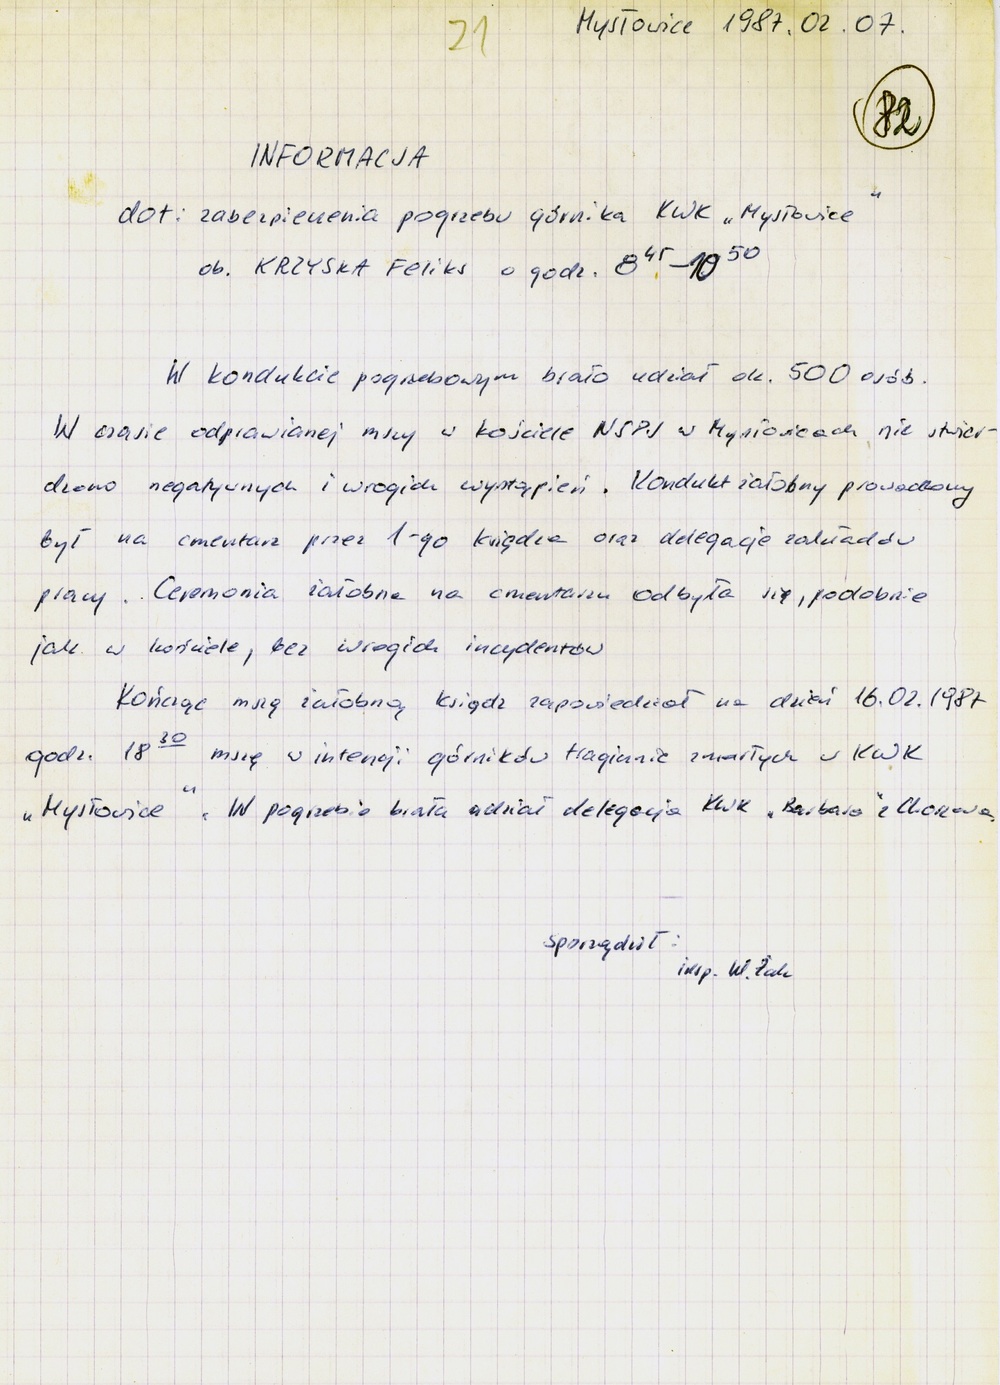 21
Mysłowice 1987.02.07.
82
INFORMACJA
dot: zabezpieczenia pogrzebu górnika KWK „Mysłowice"
ob. KRZYSKA Feliks o godz. 8⁴⁵ – 10⁵⁰
W kondukcie pogrzebowym brało udział ok. 500 osób.
W czasie odprawianej mszy w kościele NSPJ w Mysłowicach nie stwier-
dzono negatywnych i wrogich wystąpień. Kondukt żałobny prowadzony
był na cmentarz przez 1-go księdza oraz delegacje zakładów
pracy. Ceremonia żałobna na cmentarzu odbyła się, podobnie
jak w kościele, bez wrogich incydentów
Kończąc mszę żałobną ksiądz zapowiedział na dzień 16.02.1987
godz. 18³⁰ mszę w intencji górników tragicznie zmarłych w KWK
„Mysłowice". W pogrzebie brała udział delegacja KWK „Barbara" z Chorzowa.
sporządził:
insp. W. Żak